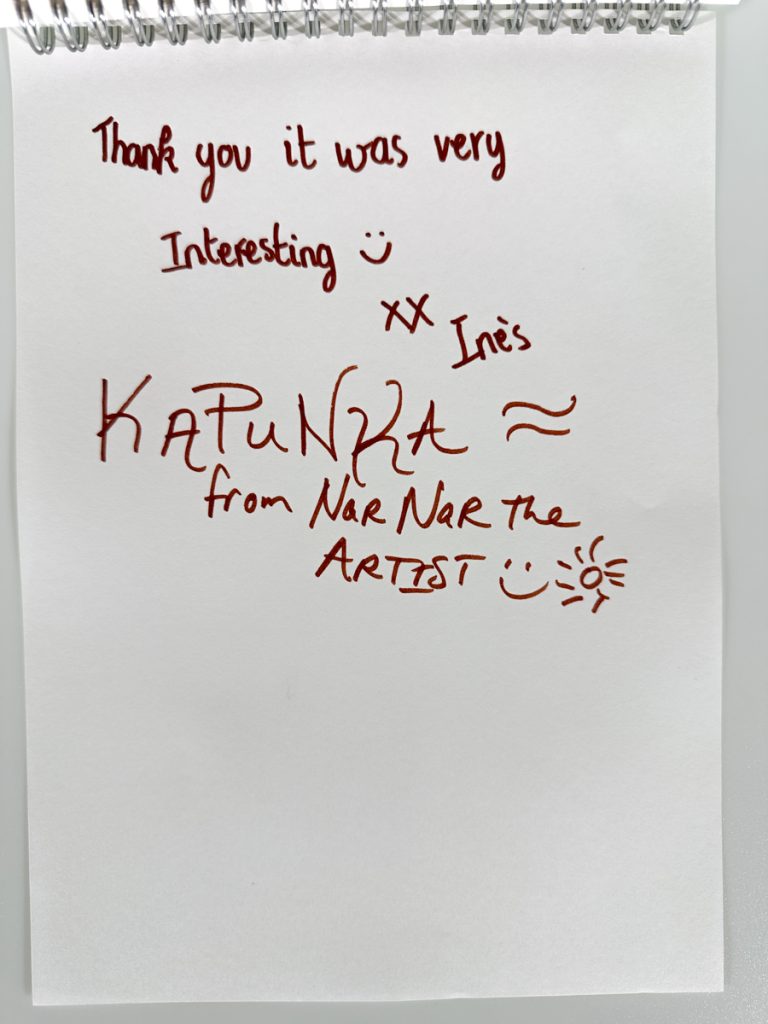 Thank you it was very
Interesting
xx Inès
KAPUNKA
from NaR NaR The
ARTIST